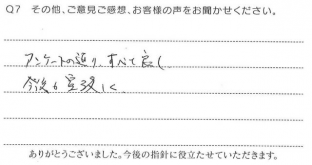 Q7 その他、ご意見ご感想、お客様の声をお聞かせください。
アンケートの通り、すべて良し
今後も宜敷く
ありがとうございました。今後の指針に役立たせていただきます。